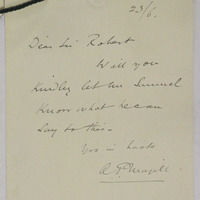 23/6.
Dear Sir Robert
Will you
kindly let me
know what he can
say to this.
Yrs in haste
A. P. Magill